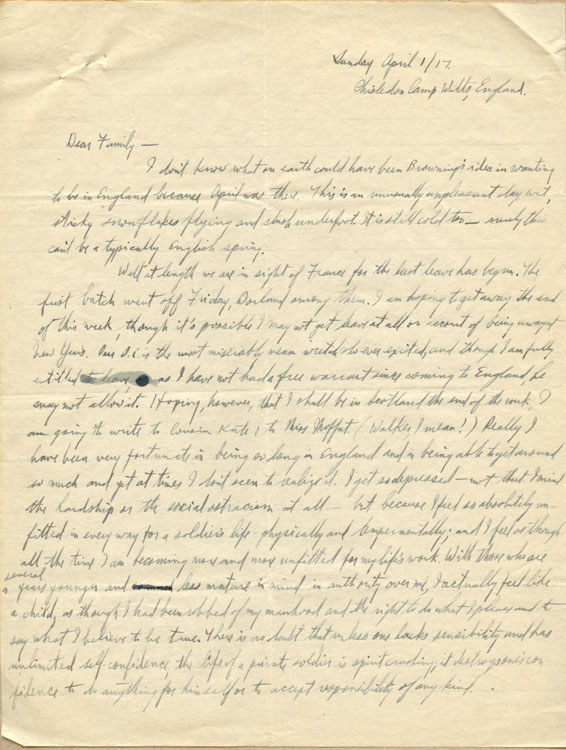 Sunday April 1/17.
Chisledon Camp Wilts, England.
Dear Family —
I don't know what on earth could have been Browning's idea in wanting
to be in England because April was there. This is an unusually unpleasant day wet,
sticky snowflakes flying and slush underfoot. It is still cold too — surely this
can't be a typically English spring.
Well at length we are in sight of France for the last leave has begun. The
first batch went off Friday, Dorland among them. I am hoping to get away the end
of this week, though it's possible I may not get leave at all on account of being away at
New Years. Our O.C. is the most miserably mean wretch who ever existed, and though I am fully
entitled as I have not had a free warrant since coming to England he
may not allow it. Hoping, however, that I shall be in Scotland the end of the week, I
am going to write to Cousin Kate & to Miss Moffat (Walker I mean!) Really I
have been very fortunate in being so long in England and in being able to get around
so much and yet at times I don't seem to realize it. I get so depressed — not that I mind
the hardship or the social ostracism at all — but because I feel so absolutely un-
fitted in every way for a soldier's life - physically and temperamentally; and I feel as though
all the time I am becoming more and more unfitted for my life's work. With those who are
several years younger and less mature in mind in authority over me, I actually feel like
a child, as though I had been robbed of my manhood and the right to do what I please and to
say what I believe to be true. There is no doubt that unless one lacks sensibility and has
unlimited self-confidence the life of a private soldier is spirit crushing, it destroys one's con-
fidence to do anything for himself or to accept responsibility of any kind.